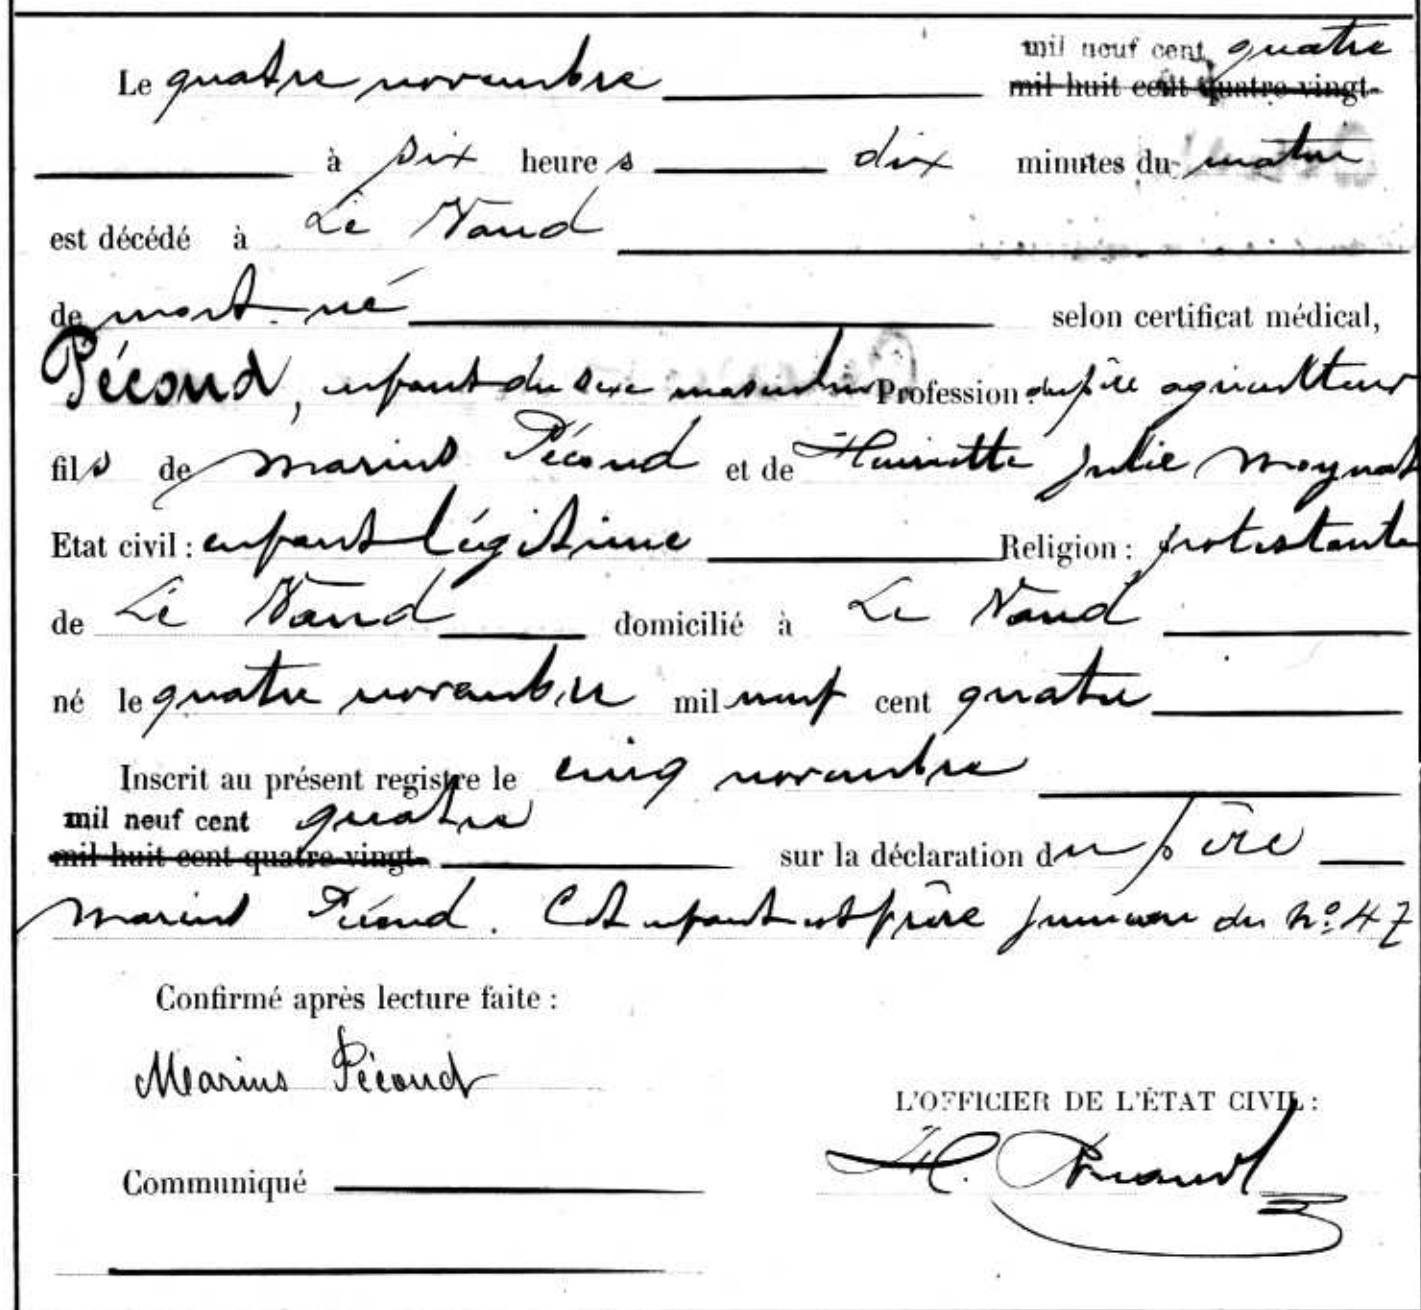 mil neuf cent quatre
Le quatre novembre mil huit cent quatre vingt-
à six heures dix minutes du matin
est décédé à Le Vaud
de mort-né selon certificat médical,
Pécoud, enfant du sexe masculin Profession : du père agriculteur
fils de Marius Pécoud et de Henriette Julie Moynat
Etat civil : enfant légitime Religion : protestante
de Le Vaud domicilié à Le Vaud
né le quatre novembre mil neuf cent quatre
Inscrit au présent registre le cinq novembre
mil neuf cent quatre
mil huit cent quatre vingt- sur la déclaration du père
Marius Pécoud. Cet enfant est frère jumeau du No 47
Confirmé après lecture faite :
Marius Pécoud
L'OFFICIER DE L'ÉTAT CIVIL :
H.
Communiqué